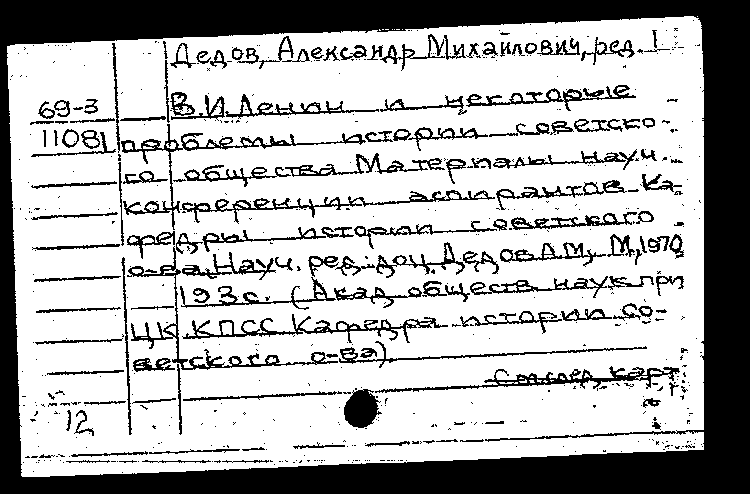 Дедов, Александр Михайлович, ред.
69-3 В.И.Ленин и некоторые
11081 проблемы истории советско-
го общества Материалы науч.
конференции аспирантов ка-
федры истории советского
о-ва. Науч. ред.: доц. Дедов А.М., М, 1970
193с. (Акад. обществ. наук при
ЦК КПСС Кафедра истории со-
ветского о-ва).
См. след. карт
12